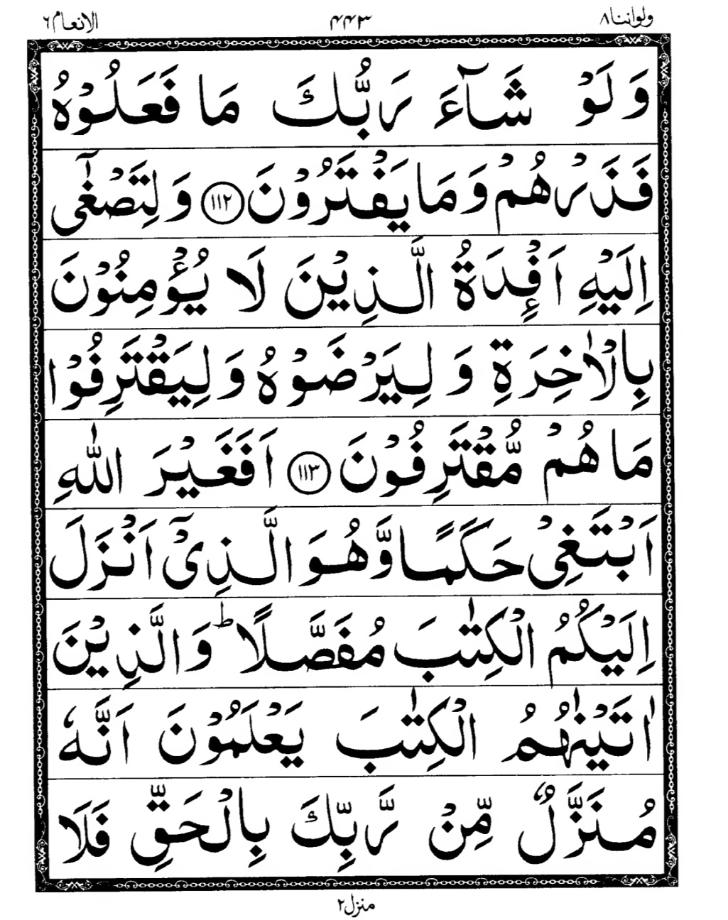 ولواننا٨ ۴۴۳ الانعام٦
وَلَوْ شَآءَ رَبُّكَ مَا فَعَلُوْهُ
فَذَرْهُمْ وَمَا يَفْتَرُوْنَ ﴿١١٢﴾ وَ لِتَصْغٰٓى
اِلَيْهِ اَفْـِٕدَةُ الَّذِيْنَ لَا يُؤْمِنُوْنَ
بِالْاٰخِرَةِ وَ لِيَرْضَوْهُ وَ لِيَقْتَرِفُوْا
مَا هُمْ مُّقْتَرِفُوْنَ ﴿١١٣﴾ اَفَغَيْرَ اللّٰهِ
اَبْتَغِىْ حَكَمًا وَّهُوَ الَّذِىْٓ اَنْزَلَ
اِلَيْكُمُ الْكِتٰبَ مُفَصَّلًا ؕ وَالَّذِيْنَ
اٰتَيْنٰهُمُ الْكِتٰبَ يَعْلَمُوْنَ اَنَّهٗ
مُنَزَّلٌ مِّنْ رَّبِّكَ بِالْحَقِّ فَلَا
منزل٢